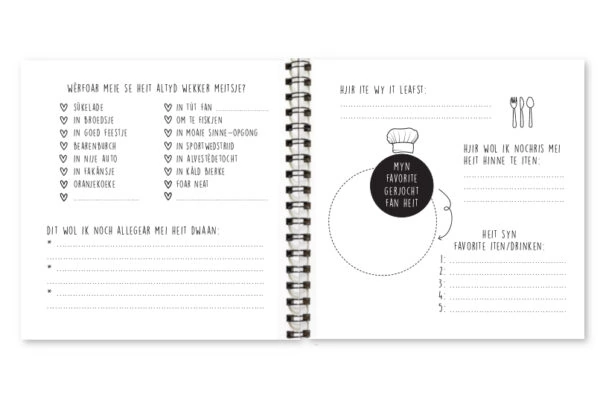 WÊRFOAR MEIE SE HEIT ALTYD WEKKER MEITSJE?
SÛKELADE
IN BROEDSJE
IN GOED FEESTJE
BEARENBURCH
IN NIJE AUTO
IN FAKÂNSJE
ORANJEKOEKE
IN TÚT FAN
OM TE FISKJEN
IN MOAIE SINNE-OPGONG
IN SPORTWEDSTRIID
IN ALVESTÊDETOCHT
IN KÂLD BIERKE
FOAR NEAT
DIT WOL IK NOCH ALLEGEAR MEI HEIT DWAAN:
*
*
*
HJIR ITE WY IT LEAFST:
MYN
FAVORITE
GERJOCHT
FAN HEIT
HJIR WOL IK NOCHRIS MEI
HEIT HINNE TE ITEN:
HEIT SYN
FAVORITE ITEN/DRINKEN:
1:
2:
3:
4:
5: